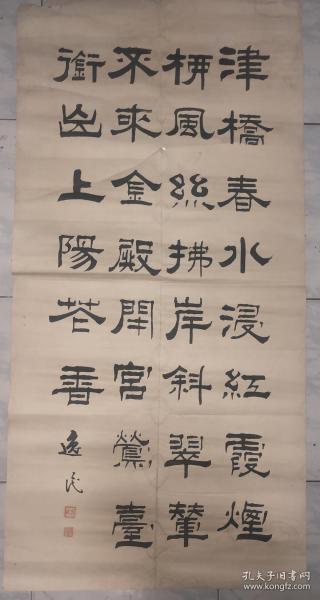 津橋春水浸紅霞煙
柳風絲拂岸斜翠輦
不來金殿閉宮鶯臺
銜出上陽花香
逸民
孔夫子旧书网